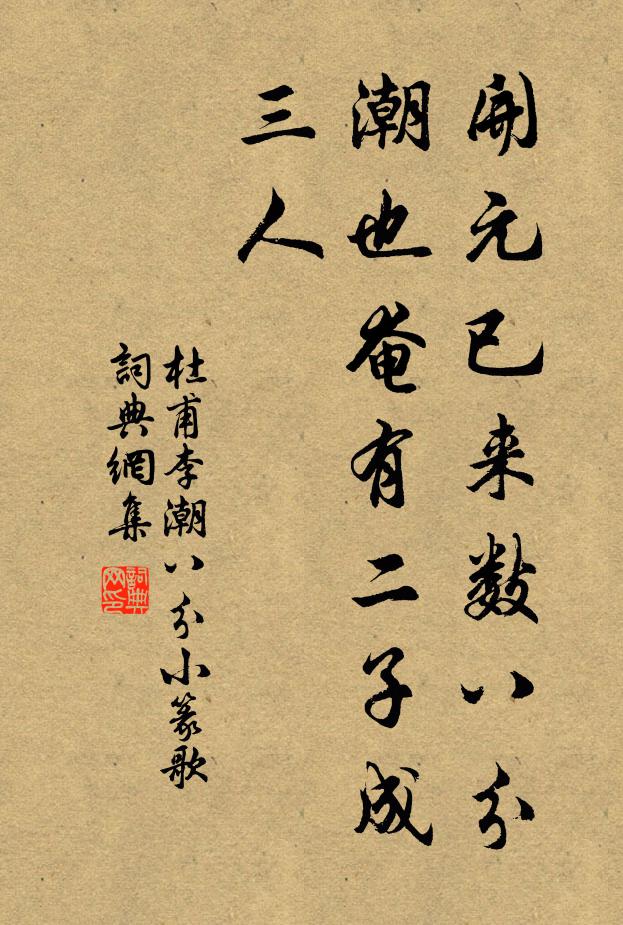 開元已来数八分
潮也奄有二子成
三人
杜甫李潮八分小篆歌
詞典網集
詞典网印